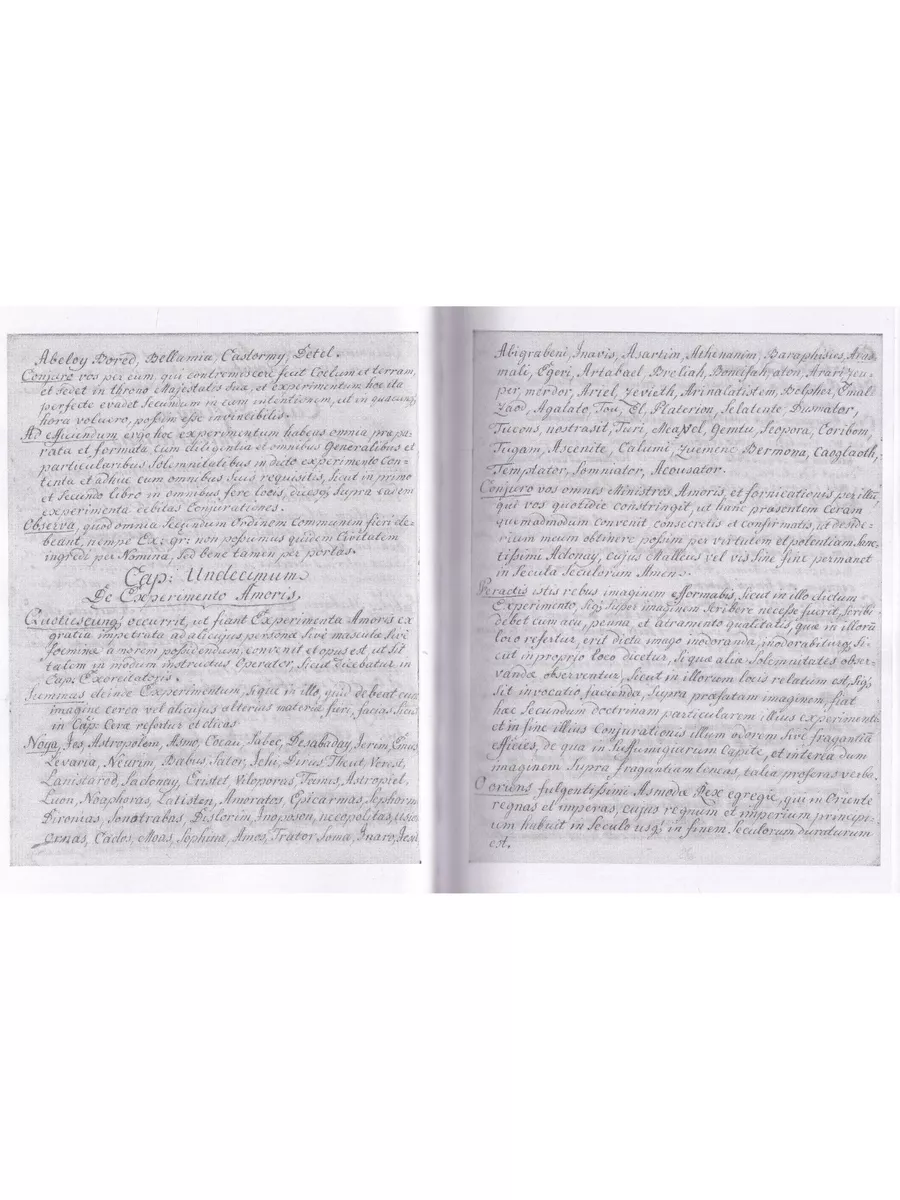 Abeloy Bored, Bellamia, Castormy, Detel.
Conjuro vos per eum, qui contremiscere fecit Coelum et terram,
et Sedet in throno Majestatis Suæ, et experimentum hoc ita
perfecte evadet Secundum meam intentionem, ut in quacunq
hora voluero, possim esse invincibilis.
Ad efficiendum ergo hoc experimentum habeas omnia præpa-
rata et formata, cum diligentia et omnibus Generalibus et
particularibus Solemnitatibus in dicto experimento Con-
tenta et adhuc cum omnibus Suis requisitis, Sicut in primo
et Secundo libro in omnibus fere locis, Supra eadem
experimenta debitas Conjurationes.
Observa, quod omnia Secundum Ordinem Communem fieri de-
beant, nempe Ex: gr: non possumus quidem Civitatem
ingredi per Nomina, Sed bene tamen per portas.
Cap: Undecimum.
De Experimento Amoris.
Quotiescunq occurrit, ut fiant Experimenta Amoris ex
gratia impetrata ad alicujus personæ Sive mascula Sive
foemina amorem possidendum, convenit et opus est, ut Sit
talem in modum instructus Operator, Sicut dicebatur in
Cap. Exorcitationis.
deinde Experimentum, Sique in illo, quid debeat cum
imagine cerea vel alicujus alterius materiæ fieri, facias Sicut
in Cap: Ceræ refertur et dicas
Noya, Jes, Astropolem, Asmo, Cocau, Tabec, Desabaday, Jerim,
Levaria, Neurim, Babus, Sator, Jehi, Dirus, Theut, Verest,
Lanistarod, Sadonay, Eristet, Viloporas, Tomis, Astropiel,
Luon, Noaphoras, Latisten, Amoratos, Epicarmas, Sephorm
Dironias, Sonotrabas, Dislorem, Jnoposon, neopolitas,
Cados, Moas, Sophina, Amos, Trator, Soma, Jnaro,
Abigrabeni, Jnavis, Asartim, Athenanim, Baraphisus,
mali, Egeri, Artabael, Breliah, Bonefah, raton, Arari, Zeu-
per, merdor, Ariel, Zevieth, Arinalatistem, Belpher, Emal
Zaod, Agalato, Tou, El, Platerion, Selatente, Dusmator,
Tueons, nostrasit, Turi, Meassel, Gemtu, Seopora, Coribom,
Tugam, Ascenite, Calumi, Zuemenc, Bermona, Caoglaoth,
Templator, Somniator, Acousator.
Conjuro vos omnes Ministros Amoris, et fornicationis per illū,
qui vos quotidie constringit, ut hanc præsentem Ceram
quemadmodum convenit consecretis et Confirmatis, ut deside-
rium meum obtinere possim per virtutem et potentiam Sanc-
tissimi Adonay, cujus Malleus vel vis Sine fine permanet
in Secula Seculorum Amen.
Peractis istis rebus imaginem efformabis, Sicut in illo dictum
Experimento, Siq Super imaginem Scribere necesse fuerit, Scribi
debet cum acu, penna, et atramento qualitatis, quæ in illorū
loco refertur, erit dicta imago inodoranda, inodorabiturq Si-
cut in proprio loco dicetur, Si quæ aliæ Solemnitates obser-
vandæ observentur, Sicut in illorum locis relatum est, Siq
Sit invocatio facienda, Supra præfatam imaginem fiat
hæc Secundum doctrinam particularem illius experimenti
et in fine illius Conjurationis illum odorem Sive fragantiā
efficies, de qua in Suffumigiorum Capite, et interea dum
imaginem Supra fragantiam tenens, talia proferas verba.
Oriens fulgentissimi Asmodæ Rex egregie, qui in Oriente
regnas et imperas, cujus regnum et imperium principi-
um habuit in Seculo usq in finem Seculorum duraturum
est.